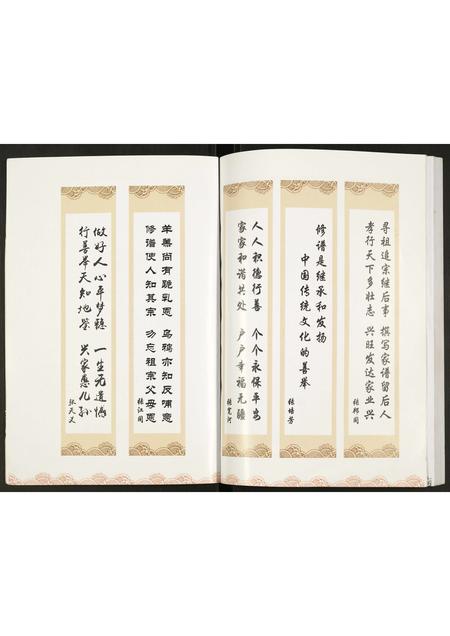 寻祖追宗继后事 撰写家谱留后人
孝行天下多壮志 兴旺发达家业兴
张邦同
修谱是继承和发扬
中国传统文化的善举
张培芳
人人积德行善 个个永保平安
家家和谐共处 户户幸福无疆
张宽河
羊羔尚有跪乳恩 乌鸦亦知反哺意
修谱使人知其宗 勿忘祖宗父母恩
张江同
做好人心平梦稳 一生无遗憾
行善举天知地鉴 兴家惠儿孙
张天义